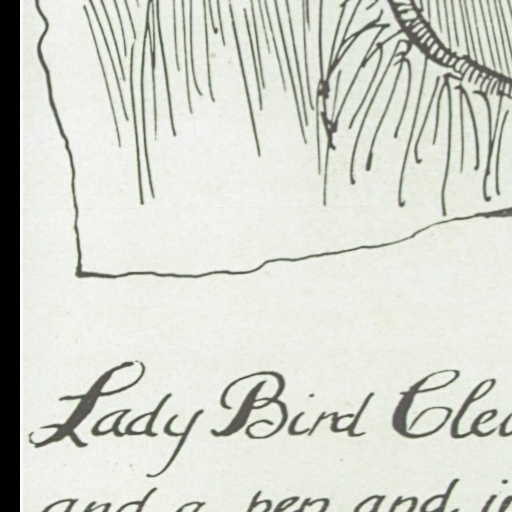 Lady Bird
and a pen and